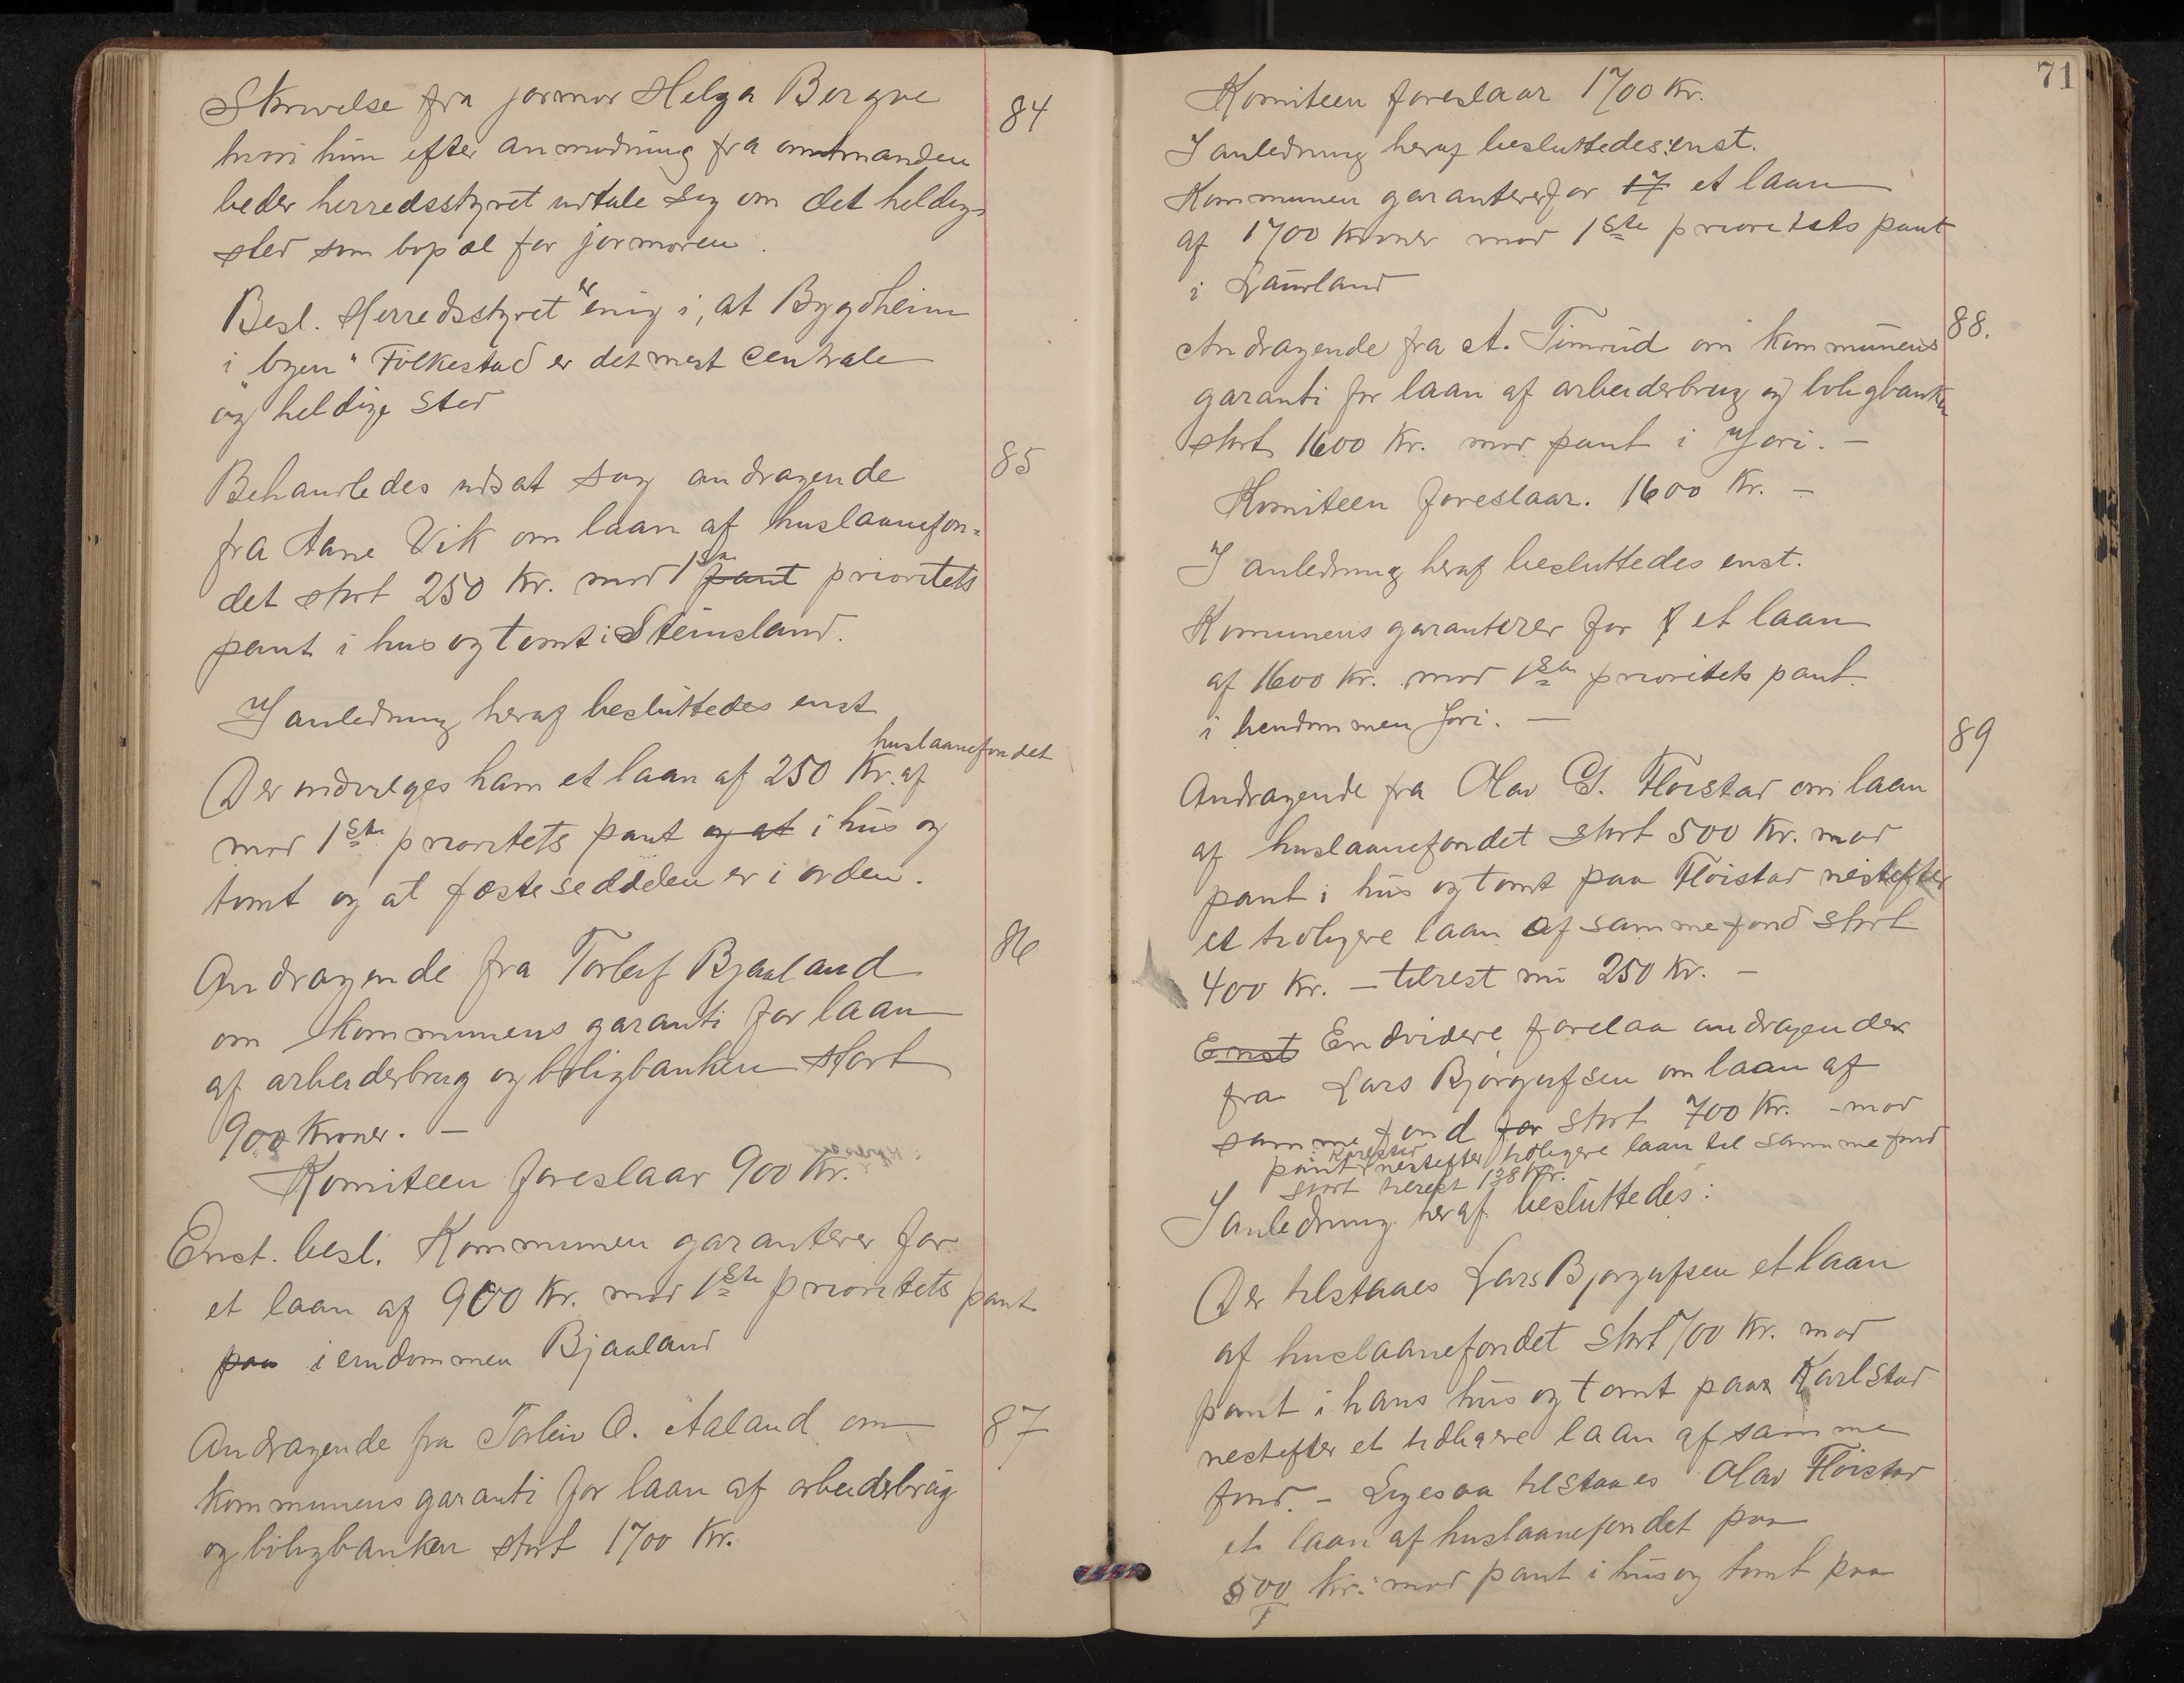 Skrivelse fra jormor Helga Bergve
84
hvori hun efter anmodning fra amtmanden
beder herredsstyret uttale sig om det heldigs
sted som bopæl for jormoren.
Besl. Herredsstyret er enig i, at Bygdheim
i "byen" Folkestad er det mest centrale
og heldige sted
Behandledes udsat sag andragende
85
fra Aane Vik om laan af huslaanefon-
det stort 250 Kr. mod 1ste pant prioritets
pant i hus og tomt i Steinsland.
I anledning heraf besluttedes enst
huslaanefondet
Der indvilges ham et laan af 250 Kr. af
mod 1ste prioritets pant og at i hus og
tomt og at festeseddelen er i orden.
Andragende fra Torleif Bjaaland
86
om kommunens garanti for laan
af arbeiderbrug og boligbanken stort
900 Kroner. —
Komiteen foreslaar 900 Kr.
Enst. besl. Kommunen garanterer for
et laan af 900 Kr. mod 1ste prioritets pant
paa i eiendommen Bjaaland
Andragende fra Torleiv O. Aaland om
87
kommunens garanti for laan af arbeiderbrug
og boligbanken stort 1700 Kr.
71
Komiteen foreslaar 1700 Kr.
I anledning heraf besluttedes: enst.
Kommunen garanterer for 17 et laan
af 1700 kroner mod 1ste prioritets pant
i Laurland
Andragende fra A. Timrud om kommunens
88.
garanti for laan af arbeiderbrug og boligbanken
stort 1600 Kr. mod pant i Jori. —
Komiteen foreslaar. 1600 Kr. —
I anledning heraf besluttedes enst.
Kommunens garanterer for et laan
af 1600 Kr. mod 1ste prioritets pant
i hendommen Jori. —
89
Andragende fra Olav G. Fløistad om laan
af huslaanefondet stort 500 Kr. mod
pant i hus og tomt paa Fløistad nestefter
et tidligere laan af samme fond stort
400 Kr. — tilrest nu 250 Kr. —
Enst Endvidere forelaa andragender
fra Lars Bjørgufsen om laan af
samme fond for stort 700 Kr. - mod
pant i Karlstad nestefter tidligere laan til samme fond
stort tilrest 138 Kr.
I anledning heraf besluttedes:
Der tilstaaes Lars Bjørgufsen et laan
af huslaanefondet stort 700 Kr. mod
pant i hans hus og tomt paa Karlstad
nestefter et tidligere laan af samme
fond. - Ligesaa tilstaaes Olav Fløistad
et laan af huslaanefondet paa
500 Kr. mod pant i hus og tomt paa